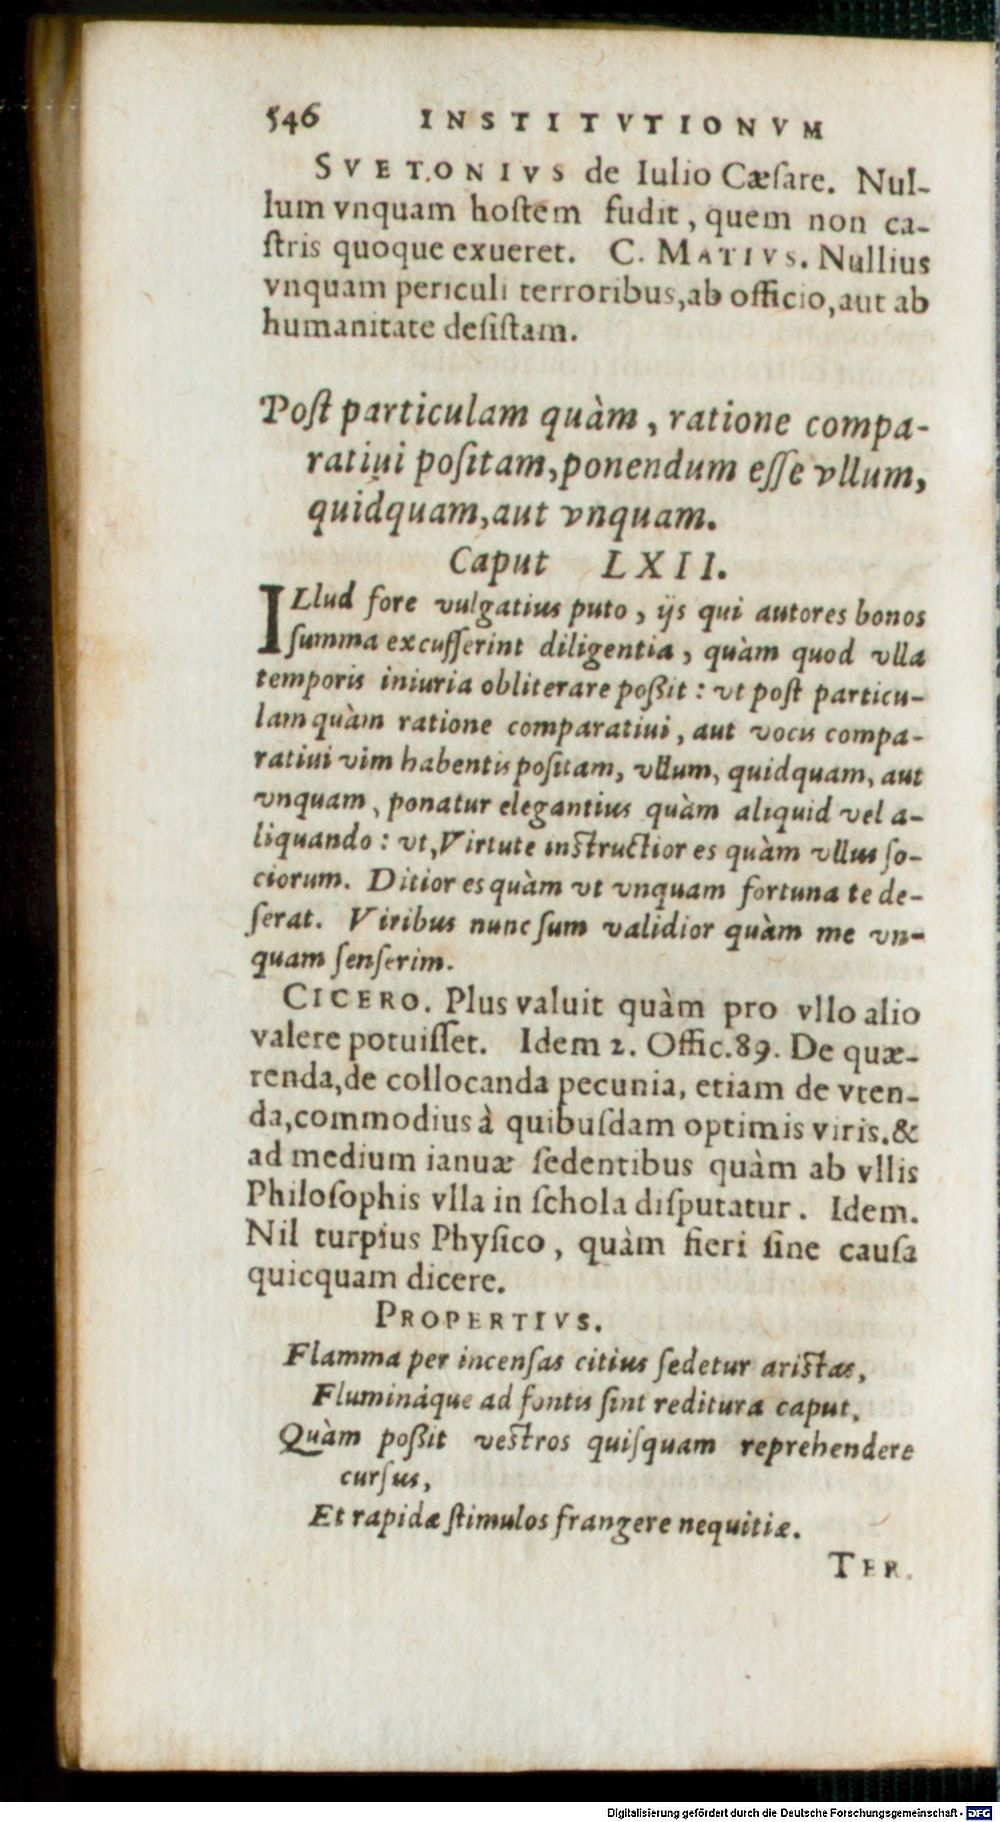 546 INSTITVTIONVM
SVETONIVS de Iulio Cæſare. Nul-
lum vnquam hoſtem fudit, quem non ca-
ſtris quoque exueret. C. MATIVS. Nullius
vnquam periculi terroribus,ab officio,aut ab
humanitate deſiſtam.
Poſt particulam quàm, ratione compa-
ratiui poſitam,ponendum eſſe vllum,
quidquam,aut vnquam.
Caput LXII.
ILlud fore vulgatius puto, ijs qui autores bonos
ſumma excuſſerint diligentia, quàm quod vlla
temporis iniuria obliterare poßit: vt poſt particu-
lam quàm ratione comparatiui, aut vocis compa-
ratiui vim habentis poſitam, vllum, quidquam, aut
vnquam, ponatur elegantius quàm aliquid vel a-
liquando: vt,Virtute inſtructior es quàm vllus ſo-
ciorum. Ditior es quàm vt vnquam fortuna te de-
ſerat. Viribus nunc ſum validior quàm me vn-
quam ſenſerim.
CICERO. Plus valuit quàm pro vllo alio
valere potuiſſet. Idem 2. Offic.89. De quæ-
renda,de collocanda pecunia, etiam de vten-
da,commodius à quibuſdam optimis viris.&
ad medium ianuæ ſedentibus quàm ab vllis
Philoſophis vlla in ſchola diſputatur. Idem.
Nil turpius Phyſico, quàm fieri ſine cauſa
quicquam dicere.
PROPERTIVS.
Flamma per incenſas citius ſedetur ariſtas,
Flumináque ad fontis ſint reditura caput,
Quàm poßit veſtros quiſquam reprehendere
curſus,
Et rapidæ ſtimulos frangere nequitiæ.
TER.
Digitalisierung gefördert durch die Deutsche Forschungsgemeinschaft - DFG